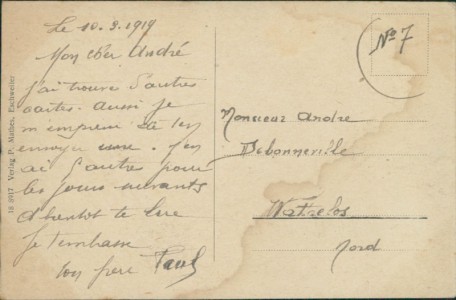 Le 10.3.1919
Mon cher André
j'ai trouvé d'autres
cartes. Aussi je
m'empresse de t'en
envoyer une. J'en
ai d'autres pour
les jours suivants
a bientot te lire
Je t'embrasse
ton frère Paul
No 7
Monsieur Andre
Debonneville
Wattrelos
Nord
18 8917 Verlag P. Mathes, Eschweiler